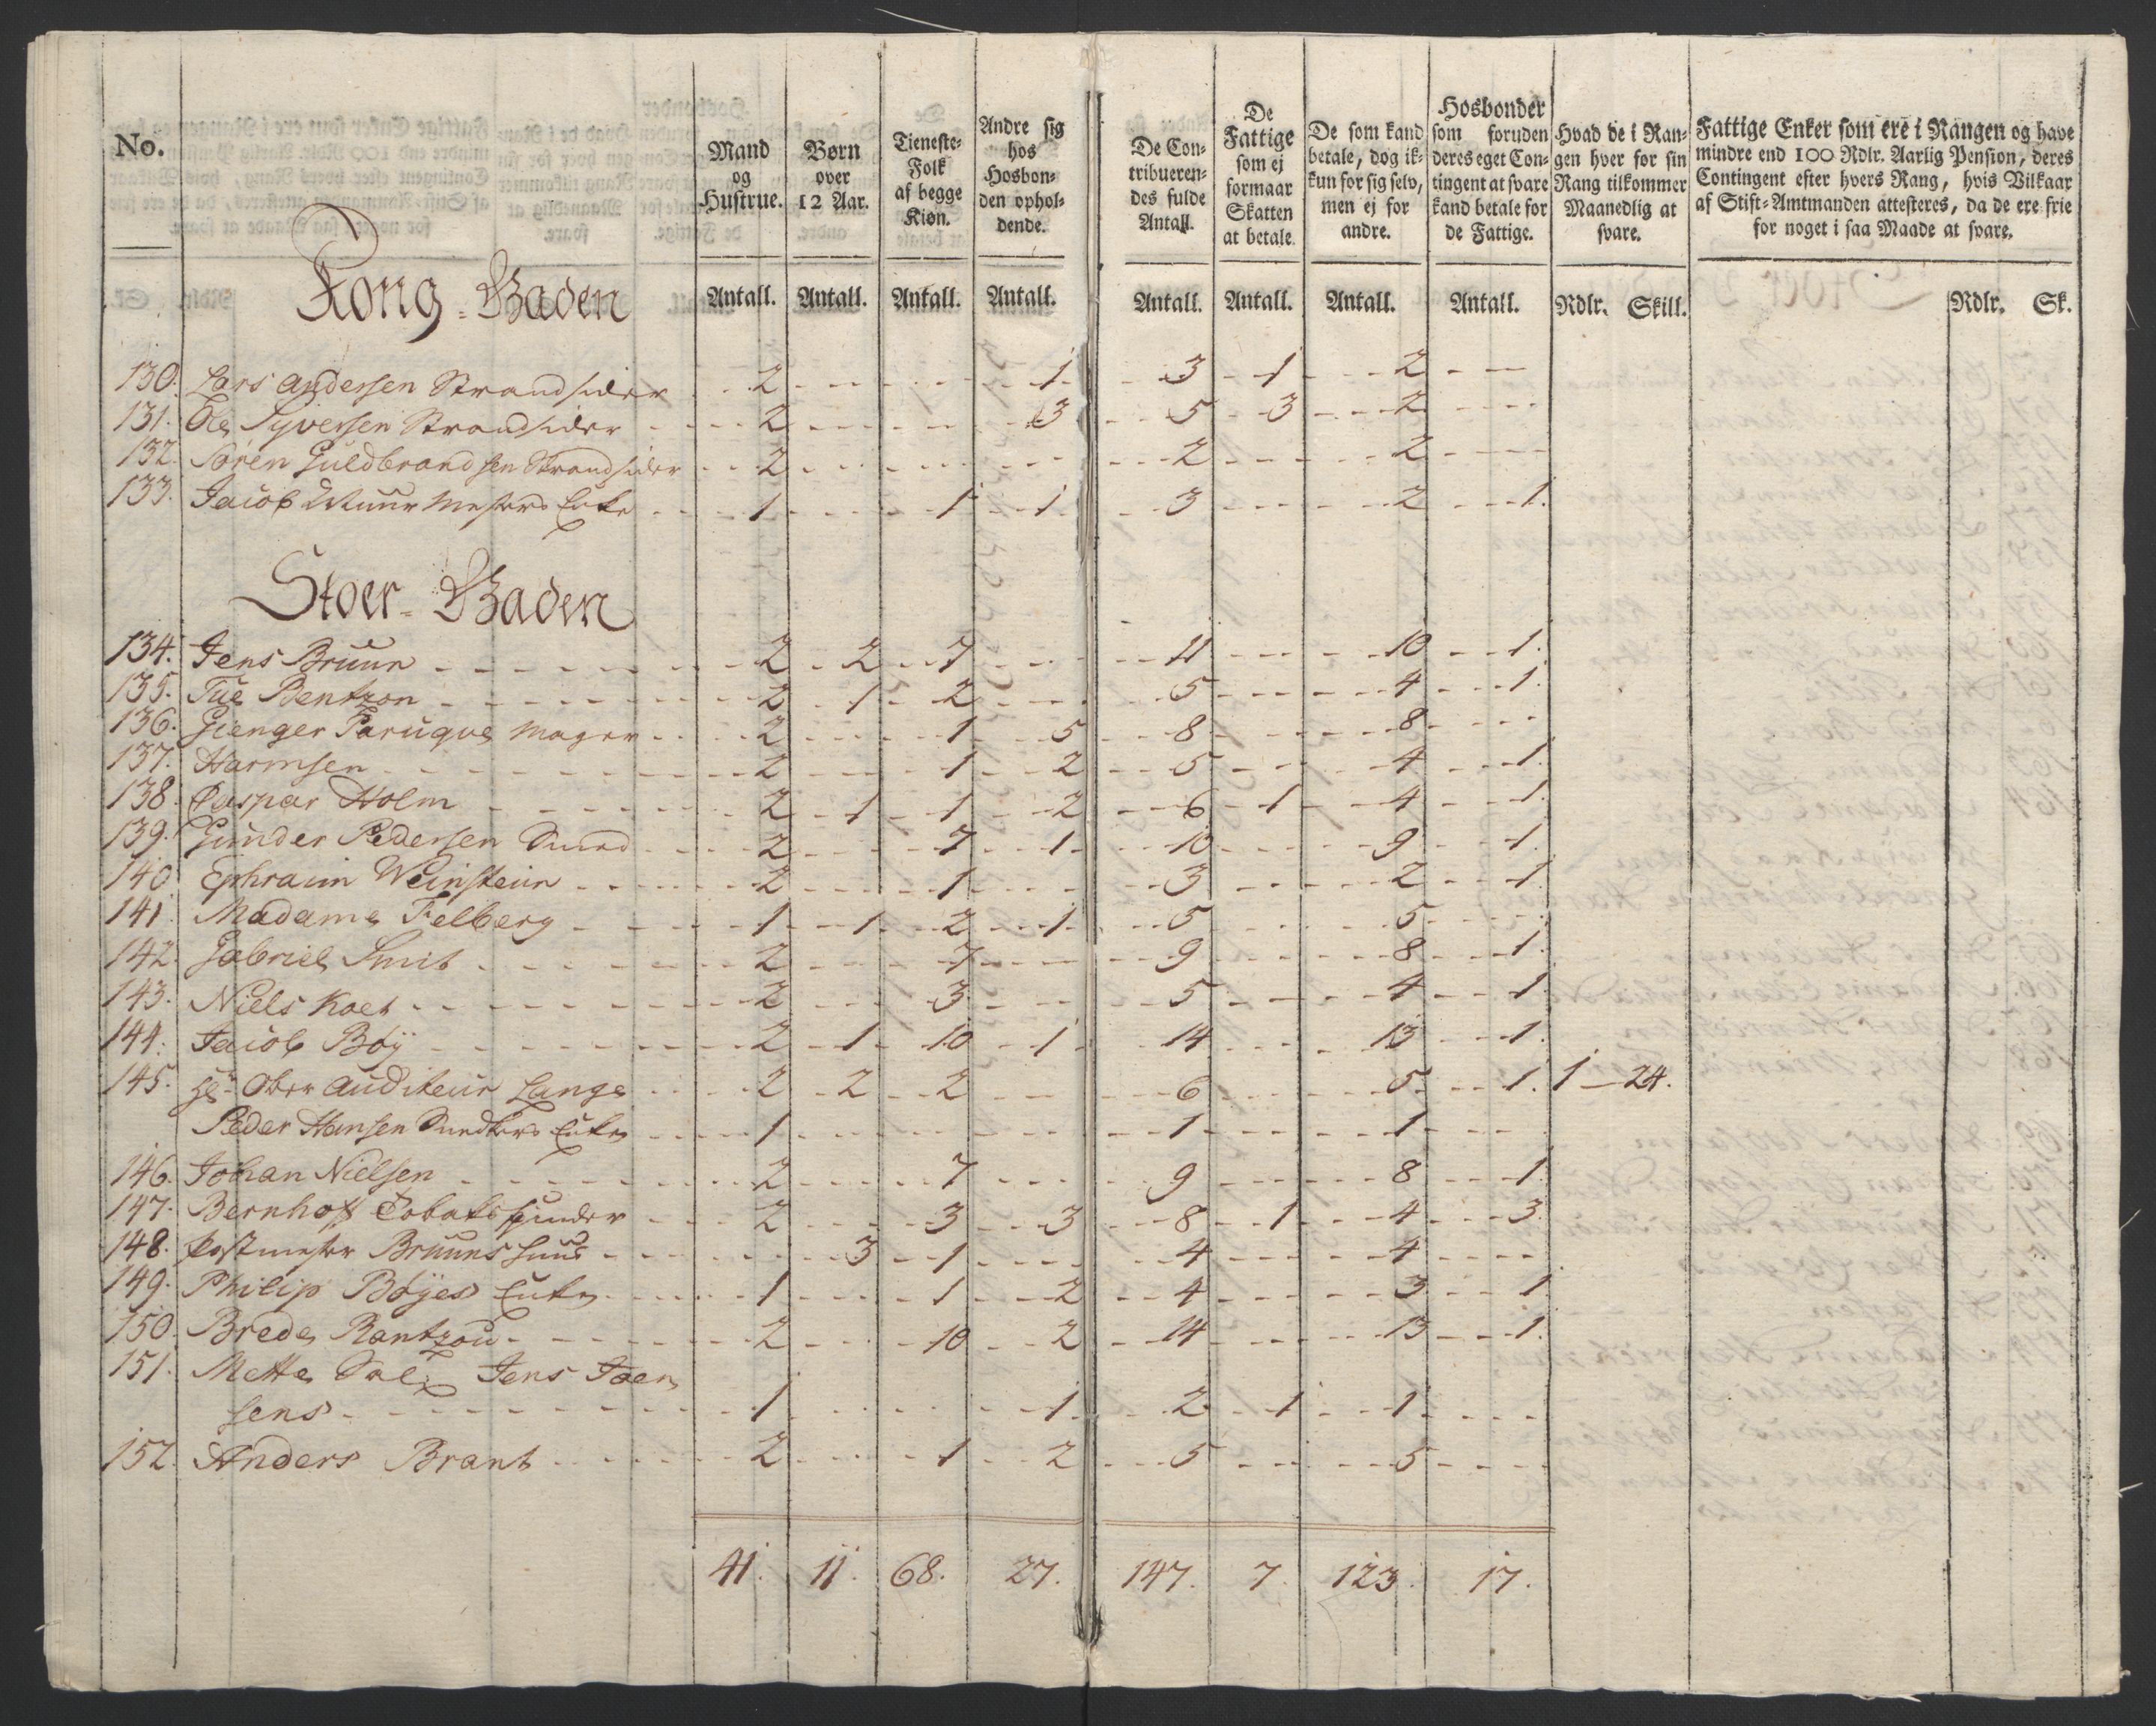 No.
Mand og Hustrue.
Børn over 12 Aar.
Tieneste-Folk af begge Kiøn.
Andre sig hos Hosbonden opholdende.
De Contribuerendes fulde Antall.
De Fattige som ej formaar Skatten at betale
De som kand betale, dog ikkun for sig selv, men ej for andre.
Hosbonder som foruden deres eget Contingent at svare kand betale for de Fattige.
Hvad de i Rangen hver for sin Rang tilkommer Maanedlig at svare.
Fattige Enker som ere i Rangen og have mindre end 100 Rdlr. Aarlig Pension, deres Contingent efter hvers Rang, hvis Vilkaar af Stift-Amtmanden attesteres, da de ere frie for noget i saa Maade at svare.
Antall. Antall. Antall. Antall. Antall. Antall. Antall. Antall. Rdlr. Skill. Rdlr. Sk.
Kong-Gaden
130. Lars Andersen Strandsider 2 1 3 1 2
131. Ole Syversen Strandsider 2 3 5 3 2
132. Søren Guldbrandsen Strandsider 2 2 2
133. Jacob Muurmesters Enke 1 1 1 3 2 1.
Stoer-Gaden
134. Jens Bruun 2 2 7 11 10 1.
135. Tue Bentzon 2 1 2 5 4 1.
136. Gienger Paruque mager 2 1 5 8 8
137. Harmsen 2 1 2 5 4 1.
138. Caspar Holm 2 1 1 2 6 1 4 1.
139. Gunder Pedersen Smed 2 7 1 10 9 1.
140 Ephraim Weinstein 2 1 3 2 1.
141 Madame Felberg 1 1 2 1 5 5
142. Gabriel Smit 2 7 9 8 1.
143. Niels Koet 2 3 5 4 1
144. Jacob Bøy 2 1 10 1 14 13 1.
145. Hr. Ober Auditeur Lange 2 2 2 6 5 1. 1 24.
Peder Hansen Snedkers Enke 1 1 1
146. Johan Nielsen 2 7 9 8 1
147. Bernhoft Tobakspinder 2 3 3 8 1 4 3.
148. Postmester Bruuns Huus 3 1 4 4
149. Philip Bøyes Enke 1 1 2 4 3 1
150. Brede Rantzou 2 10 2 14 13 1.
151. Mette Sal: Jens Joen
sens 1 1 2 1 1
152. Anders Brant 2 1 2 5 5
41. 11. 68. 27. 147. 7 123. 17.